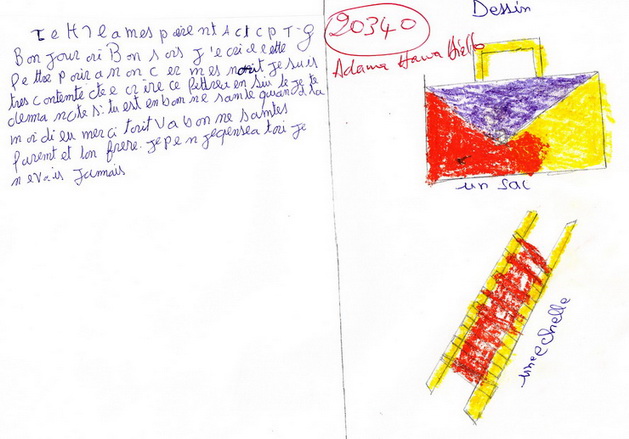 Bon jour ou Bon soir j'ecric cette
lettre pour anoncer mes nouit je suis
tres contente de ecrire ce lettrea en suite je te
dema note si tu est en bonne sante quand ta
moi dieu merci tout va bonne santes
parent et ton frere. je pen jepensea toi je
nevais Jamais
20340
Adama Hawa Diello
Dessin
un sac
une echelle